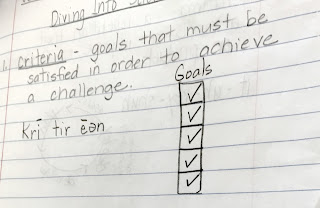 Diving Into
1. Criteria - goals that must be
satisfied in order to achieve
a challenge.
Goals
Krī tir ēən